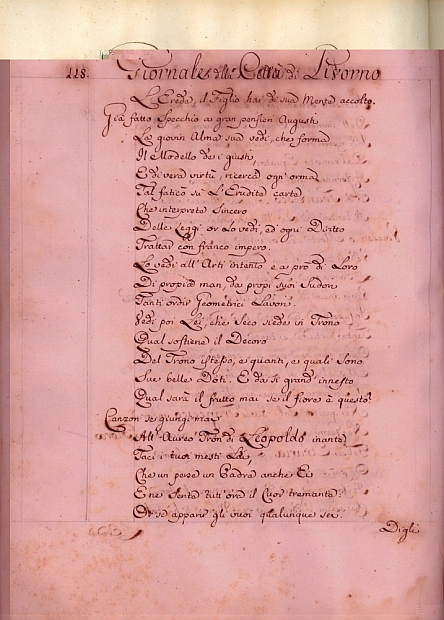 118. Giornale della Città di Livorno
L'Erede, il Figlio hai di sua Mente accolto.
Già fatto Specchio a gran pensieri Augusti
La giovin Alma sua vedi, che forma
Il Modello de i giusti,
E di vera virtù, ricerca ogn'orma
Tal fatico su L'Erudite carte
Che interprete Sincero
Delle Leggi or Lo vedi, ed ogni Dritto
Trattar con franco impero.
Lo vedi all'Arti intento e a pro di Loro
Di propria man, da propj suoi Sudori
Tanti ordir Geometrici Lavori.
Vedi poi Lei, che Seco siede in Trono
Qual sostiene il Decoro
Del Trono istesso, e quanti, e quali Sono
Sue belle Doti. E da sì grand'innesto
Qual sarà il frutto mai se il fiore è questo?
Canzon se giungi mai
All'Aureo Tron di Leopoldo inante
Taci i tuoi mesti Lai,
Che un perse un Padre anche Ei
E ne Senta tutt'ora il Cuor tremante:
Or se apparir gli vuoi qualunque sei.
Digli